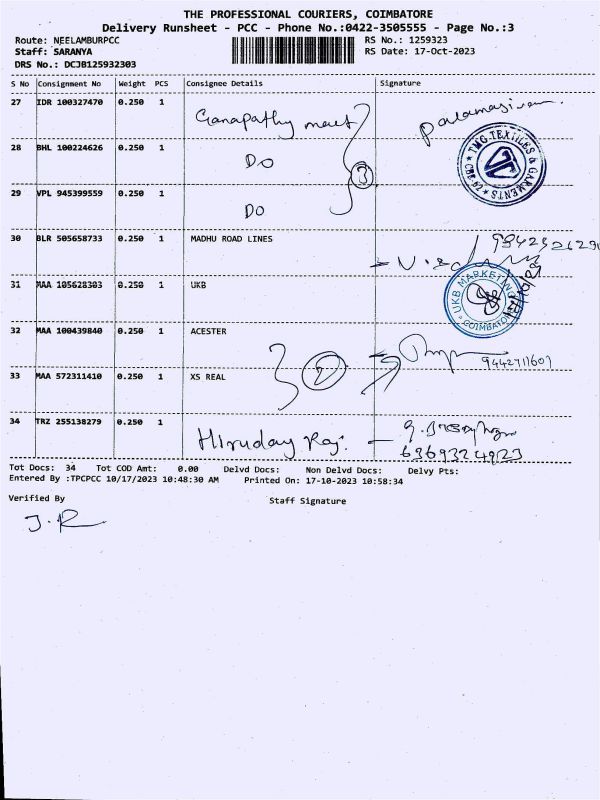 THE PROFESSIONAL COURIERS, COIMBATORE
Delivery Runsheet - PCC - Phone No.:0422-3505555 - Page No.:3
Route: NEELAMBURPCC
Staff: SARANYA
DRS No.: DCJB125932303
RS No.: 1259323
RS Date: 17-Oct-2023
S No Consignment No Weight PCS Consignee Details Signature
27 IDR 100327470 0.250 1 Ganapathy
28 BHL 100224626 0.250 1 DO
3
TMG TEXTILES & GARMENTS
29 VPL 945399559 0.250 1 DO
30 BLR 505658733 0.250 1 MADHU ROAD LINES
31 MAA 105628303 0.250 1 UKB
UKB MARKETING
COIMBATORE
32 MAA 100439840 0.250 1 ACESTER
2
9442711601
33 MAA 572311410 0.250 1 XS REAL
34 TRZ 255138279 0.250 1 Hiruday Raj.
6369324923
Tot Docs: 34 Tot COD Amt: 0.00 Delvd Docs: Non Delvd Docs: Delvy Pts:
Entered By :TPCPCC 10/17/2023 10:48:30 AM Printed On: 17-10-2023 10:58:34
Verified By Staff Signature
J.R